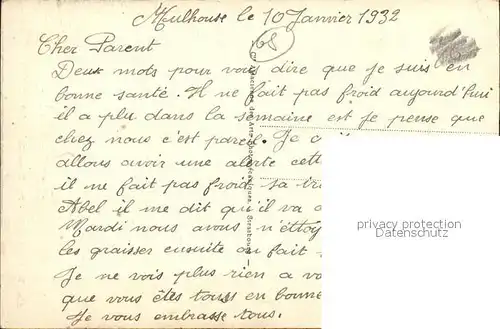 Mulhouse le 10 Janvier 1932
68
Cher Parent
Deux mots pour vous dire que je suis en
bonne santé. Il ne fait pas froid aujourd'hui
il a plu dans la semaine est je pense que
chez nous c'est pareil. Je
allons avoir une alerte cett
il ne fait pas froid sa
Abel il me dit qu'il va
Mardi nous avons n'éttoy
les graisser ensuite on fait
Je ne vois plus rien a vo
que vous êtes touss en bonne
Je vous embrasse tous.
privacy protection
Datenschutz